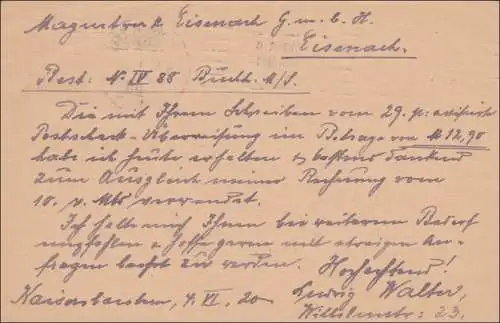 Magnetwerk Eisenach G. m. b. H.
Eisenach.
Best: № IV 88 Buchh. M/S.
Die mit Ihrem Schreiben vom 29. p. avisierte
Postscheck-Überweisung im Betrage von M 12,90
habe ich heute erhalten & bestens dankend
zum Ausgleich meiner Rechnung vom
10. v. Mts verwendet.
Ich halte mich Ihnen bei weiterem Bedarf
empfohlen & hoffe gerne mit etwaigen An-
fragen beehrt zu werden. Hochachtend!
Kaiserslautern, 4. VI. 20 Ludwig Walter,
Wilhelmstr: 23.